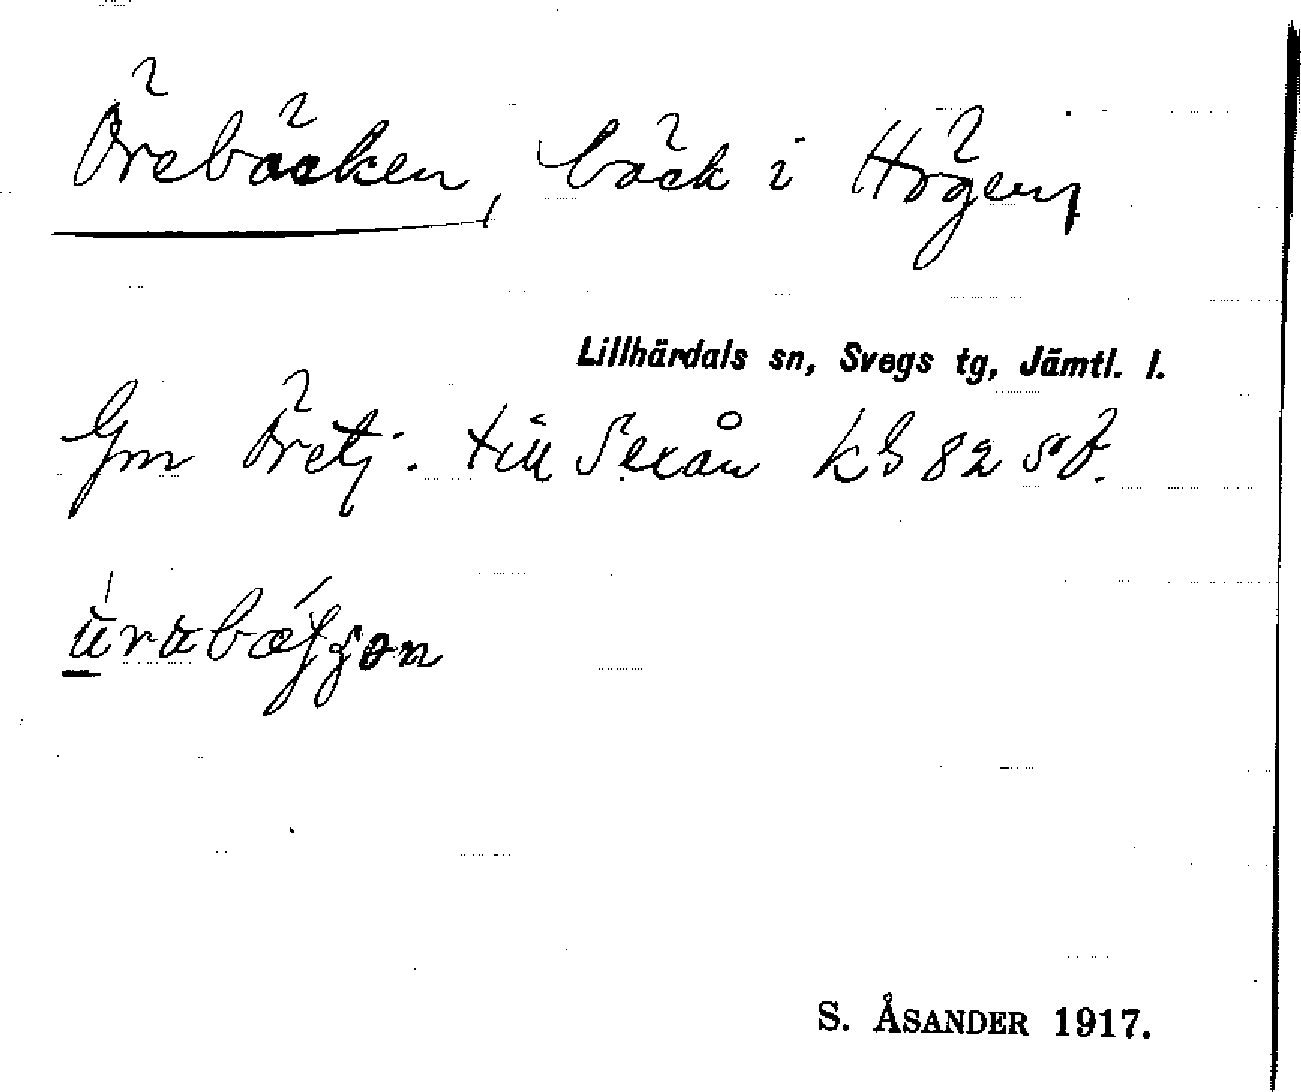 Örebäcken, bäck i Högen,
Lillhärdals sn, Svegs tg, Jämtl. l.
Gm Öretj. till Sexån kb 82 sv.
S. ÅSANDER 1917.